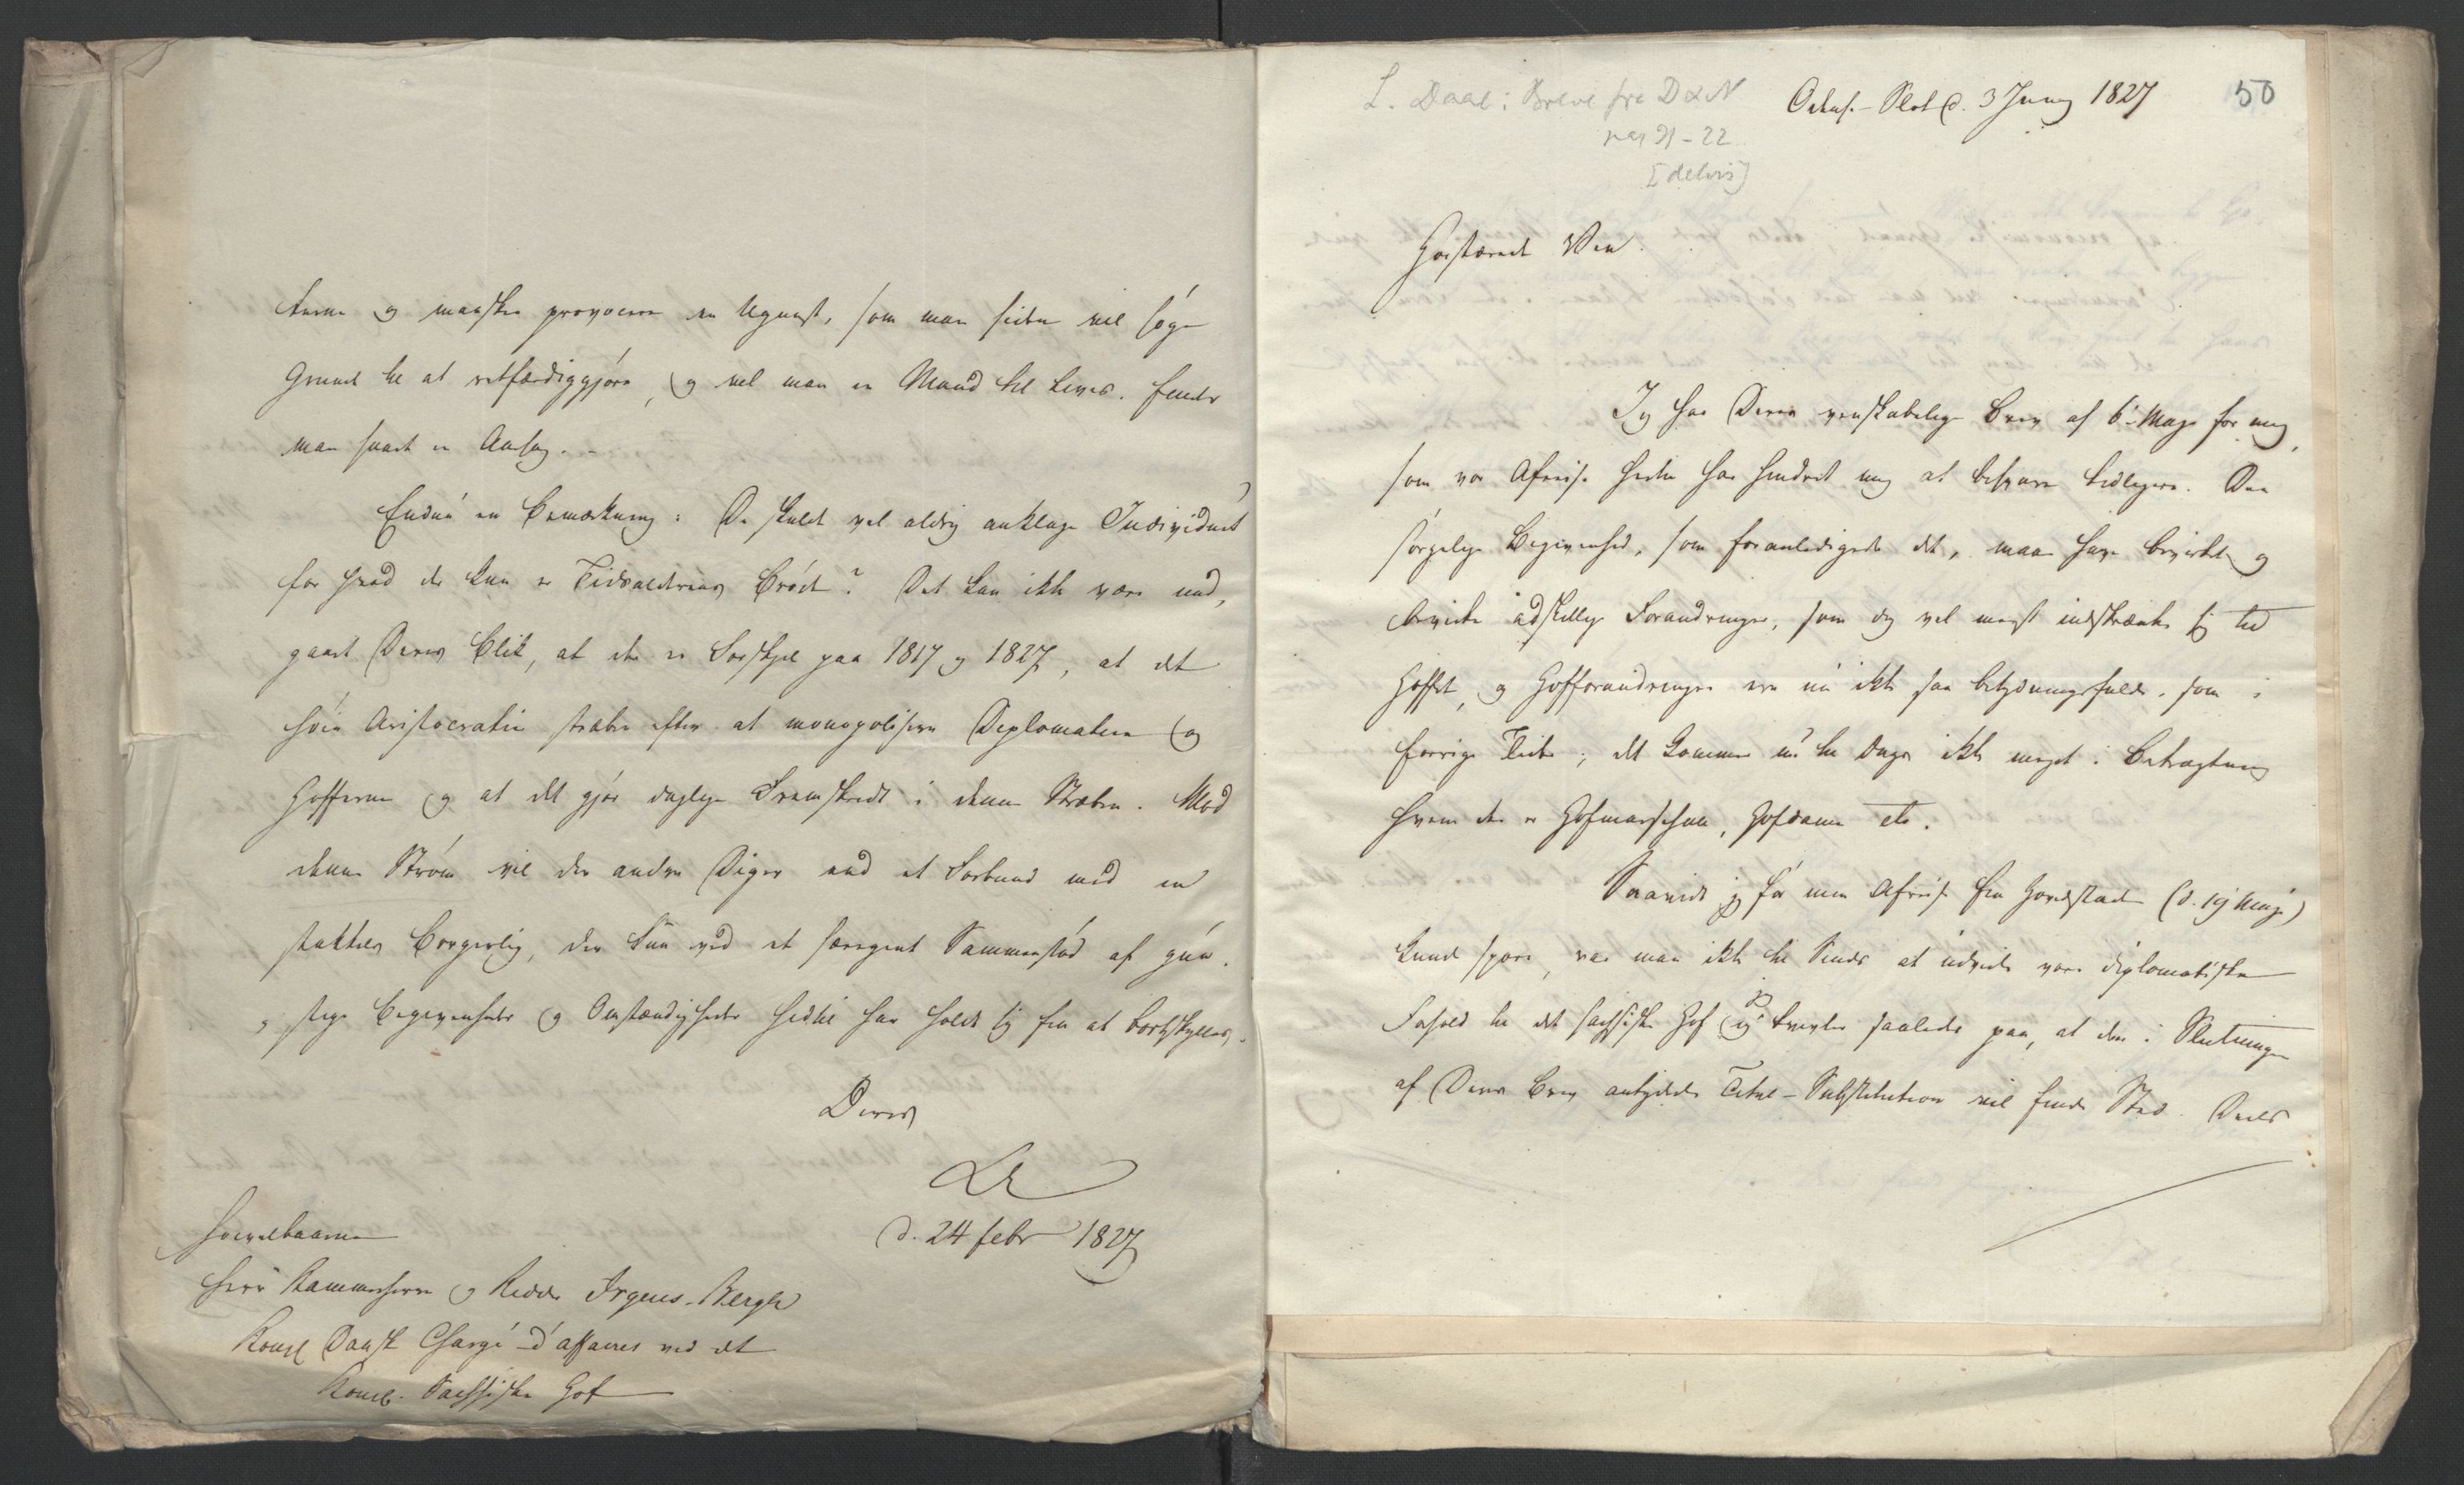 og maaskee provocere en Ugunst, som man siden vil søge
Grund til at retfærdiggjøre, og vel man en Mand til Livs, finder
man snart en Aarsag. -
Endnu en Bemærkning: De skulde vel aldrig anklage Individuet
for hvad der kun er Tidsalderens Brøde? Det kan ikke være und,
gaaet Deres Blik, at der er Forskjel paa 1817 og 1827, at det
høie Aristocratie stræber efter at monopolisere Diplomatien og
Hofferne og at det gjør daglige Fremskridt i denne Stræben. Mod
denne Strøm vil der andre Diger end et Forbund med en
Borgerlig, der kun ved et særegent Sammenstød af gun,
stige Begivenheder og Omstændigheder hidtil har holdt sig fra at bortskylles.
Deres
d. 24 Febr 1827
Høivelbaarne
Herr Kammerherre og Ridder Irgens-Bergh
Kongl. Dansk Chargé d'affaires ved det
Kongl. Sachsiske Hof
L. Daae: Breve fra D & N
pag 21-22
[delvis]
Slot d. 3 Juny 1827
50
Høistærede Ven.
Jeg har Deres venskabelige Brev af 6 Maji for mig,
som vor Afreise hertil har hindret mig at besvare tidligere. Den
sørgelige Begivenhed, som foranledigede det, maa have bevirket og
bevirke adskillige Forandringer, som dog vel meest indskrænke sig til
Hoffet, og Hofforandringer ere nu ikke saa betydningsfulde, som i
forrige Tider; det kommer nu til Dags ikke meget i Betragtning
hvem der er Hofmarschal, Hofdame etc.
Saavidt jeg før min Afreise fra Hovedstaden (d. 19 Maji)
kunde spore, var man ikke til Sinds at udvide vore diplomatiske
Forhold til det sachsiske Hof og jeg tvivler saaledes paa, at den i Slutningen
af Deres Brev antydede Titel-Substitution vil finde Sted. Deels